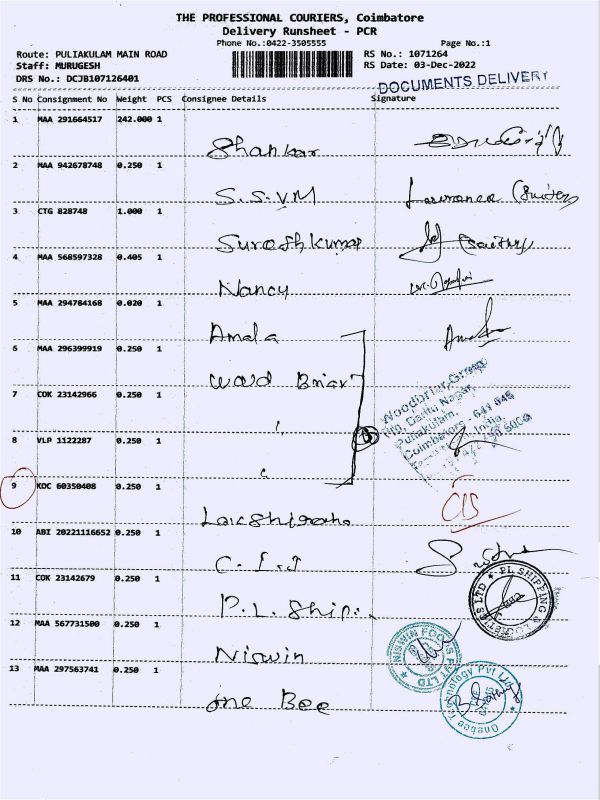 THE PROFESSIONAL COURIERS, Coimbatore
Delivery Runsheet - PCR
Phone No.:0422-3505555 Page No.:1
Route: PULIAKULAM MAIN ROAD RS No.: 1071264
Staff: MURUGESH RS Date: 03-Dec-2022
DRS No.: DCJB107126401
DOCUMENTS DELIVERY
S No Consignment No Weight PCS Consignee Details Signature
1 MAA 291664517 242.000 1
Shankar
2 MAA 942678748 0.250 1
S.S.V.M
3 CTG 828748 1.000 1
Sureshkumar
4 MAA 568597328 0.405 1
Nancy
5 MAA 294784168 0.020 1
Amala
6 MAA 296399919 0.250 1
Wood Briar
7 COK 23142966 0.250 1
Woodbriar Group
Puliakulam,
Coimbatore - 641 045
India.
8 VLP 1122287 0.250 1
9 KOC 60350408 0.250 1
10 ABI 20221116652 0.250 1
11 COK 23142679 0.250 1
P.L. Ship.
PL SHIPPING & LOGISTICS LTD
12 MAA 567731500 0.250 1
Niswin
NISWIN FOODS PVT LTD
13 MAA 297563741 0.250 1
One Bee
Onebee Technology Pvt Ltd